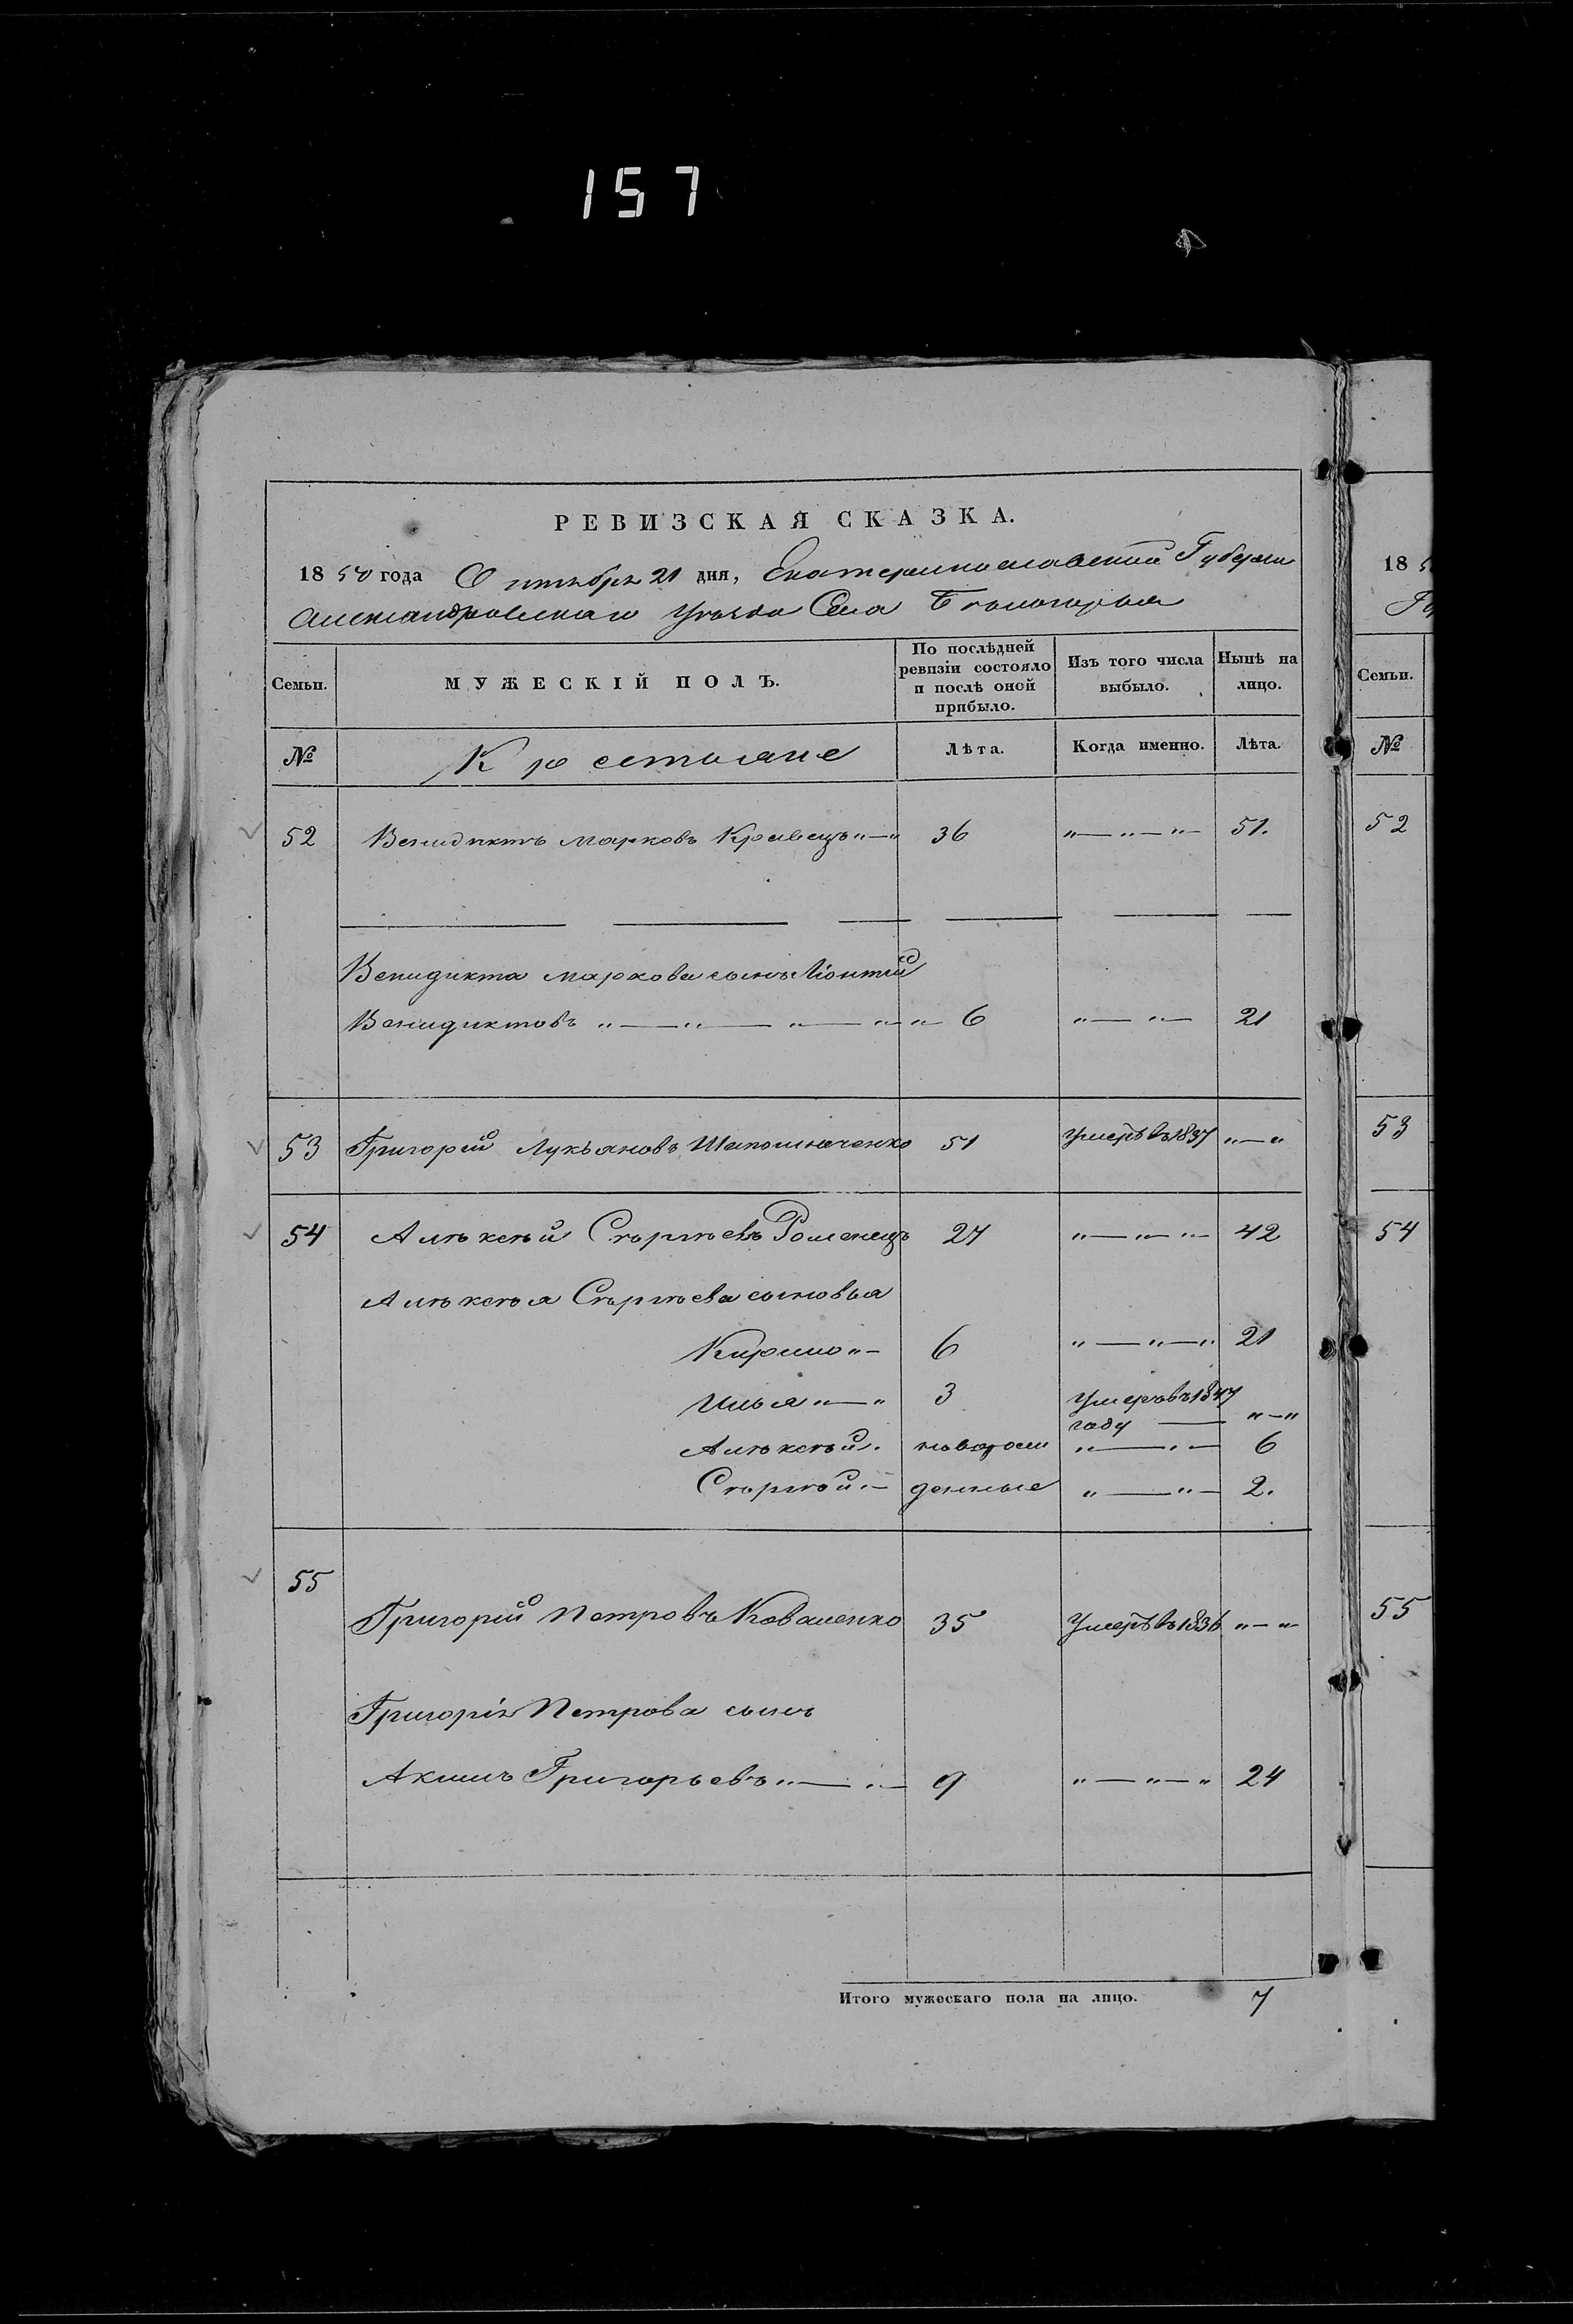 157
РЕВИЗСКАЯ СКАЗКА.
1850 года Октября 21 дня, Екатеринославской Губерни
Александровскаго Уѣзда Села Белогорья
Семьи.
МУЖЕСКІЙ ПОЛЪ.
По послѣдней ревизіи состояло и послѣ оной прибыло.
Изъ того числа выбыло.
Нынѣ на лицо.
№ Крестьяне Лѣта. Когда именно. Лѣта.
52 Венидиктъ Марковъ Кравецъ "—" 36 "—"—"— 51.
Венидикта Маркова сынъ Ліонтій
Венидиктовъ "—"—"—"—"— 6 "—"— 21
53 Григорій Лукьяновъ Шапошниченко 51 Умеръ въ 1837 "—"
54 Алѣксѣй Сѣргѣевъ Роменецъ 27 "—"—"— 42
Алѣксѣя Сѣргѣева сыновья
Кирило "— 6 "—"—" 21
Илья "—" 3 Умеръ въ 1847
году — "—"
Алѣксѣй. новорож "—"— 6
Сѣргѣй "— денные "—"— 2.
55
Григорій Петровъ Коваленко 35 Умеръ въ 1836 "—"
Григорія Петрова сынъ
Акимъ Григорьевъ "—"— 9 "—"—" 24
Итого мужескаго пола на лицо. 7
18 5
Семьи.
№
52
53
54
55